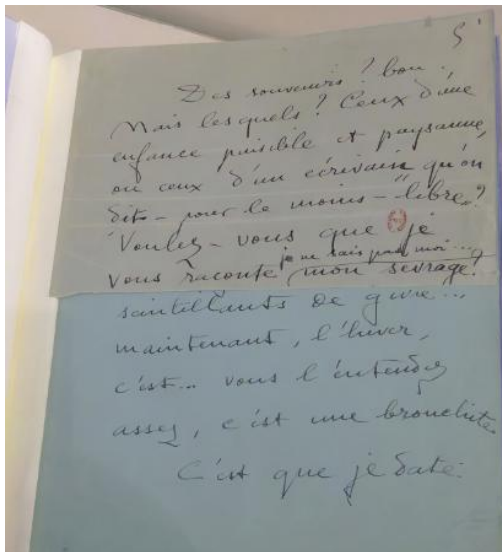 5
Des souvenirs ? bon.
Mais lesquels ? Ceux d'une
enfance paisible et paysanne,
ou ceux d'un écrivain qu'on
dit – pour le moins – "libre" ?
Voulez-vous que je
je ne sais pas, moi...
vous raconte mon sevrage ?
scintillants de givre...
maintenant, l'hiver,
c'est... vous l'entendez
assez, c'est une bronchite.
C'est que je date.